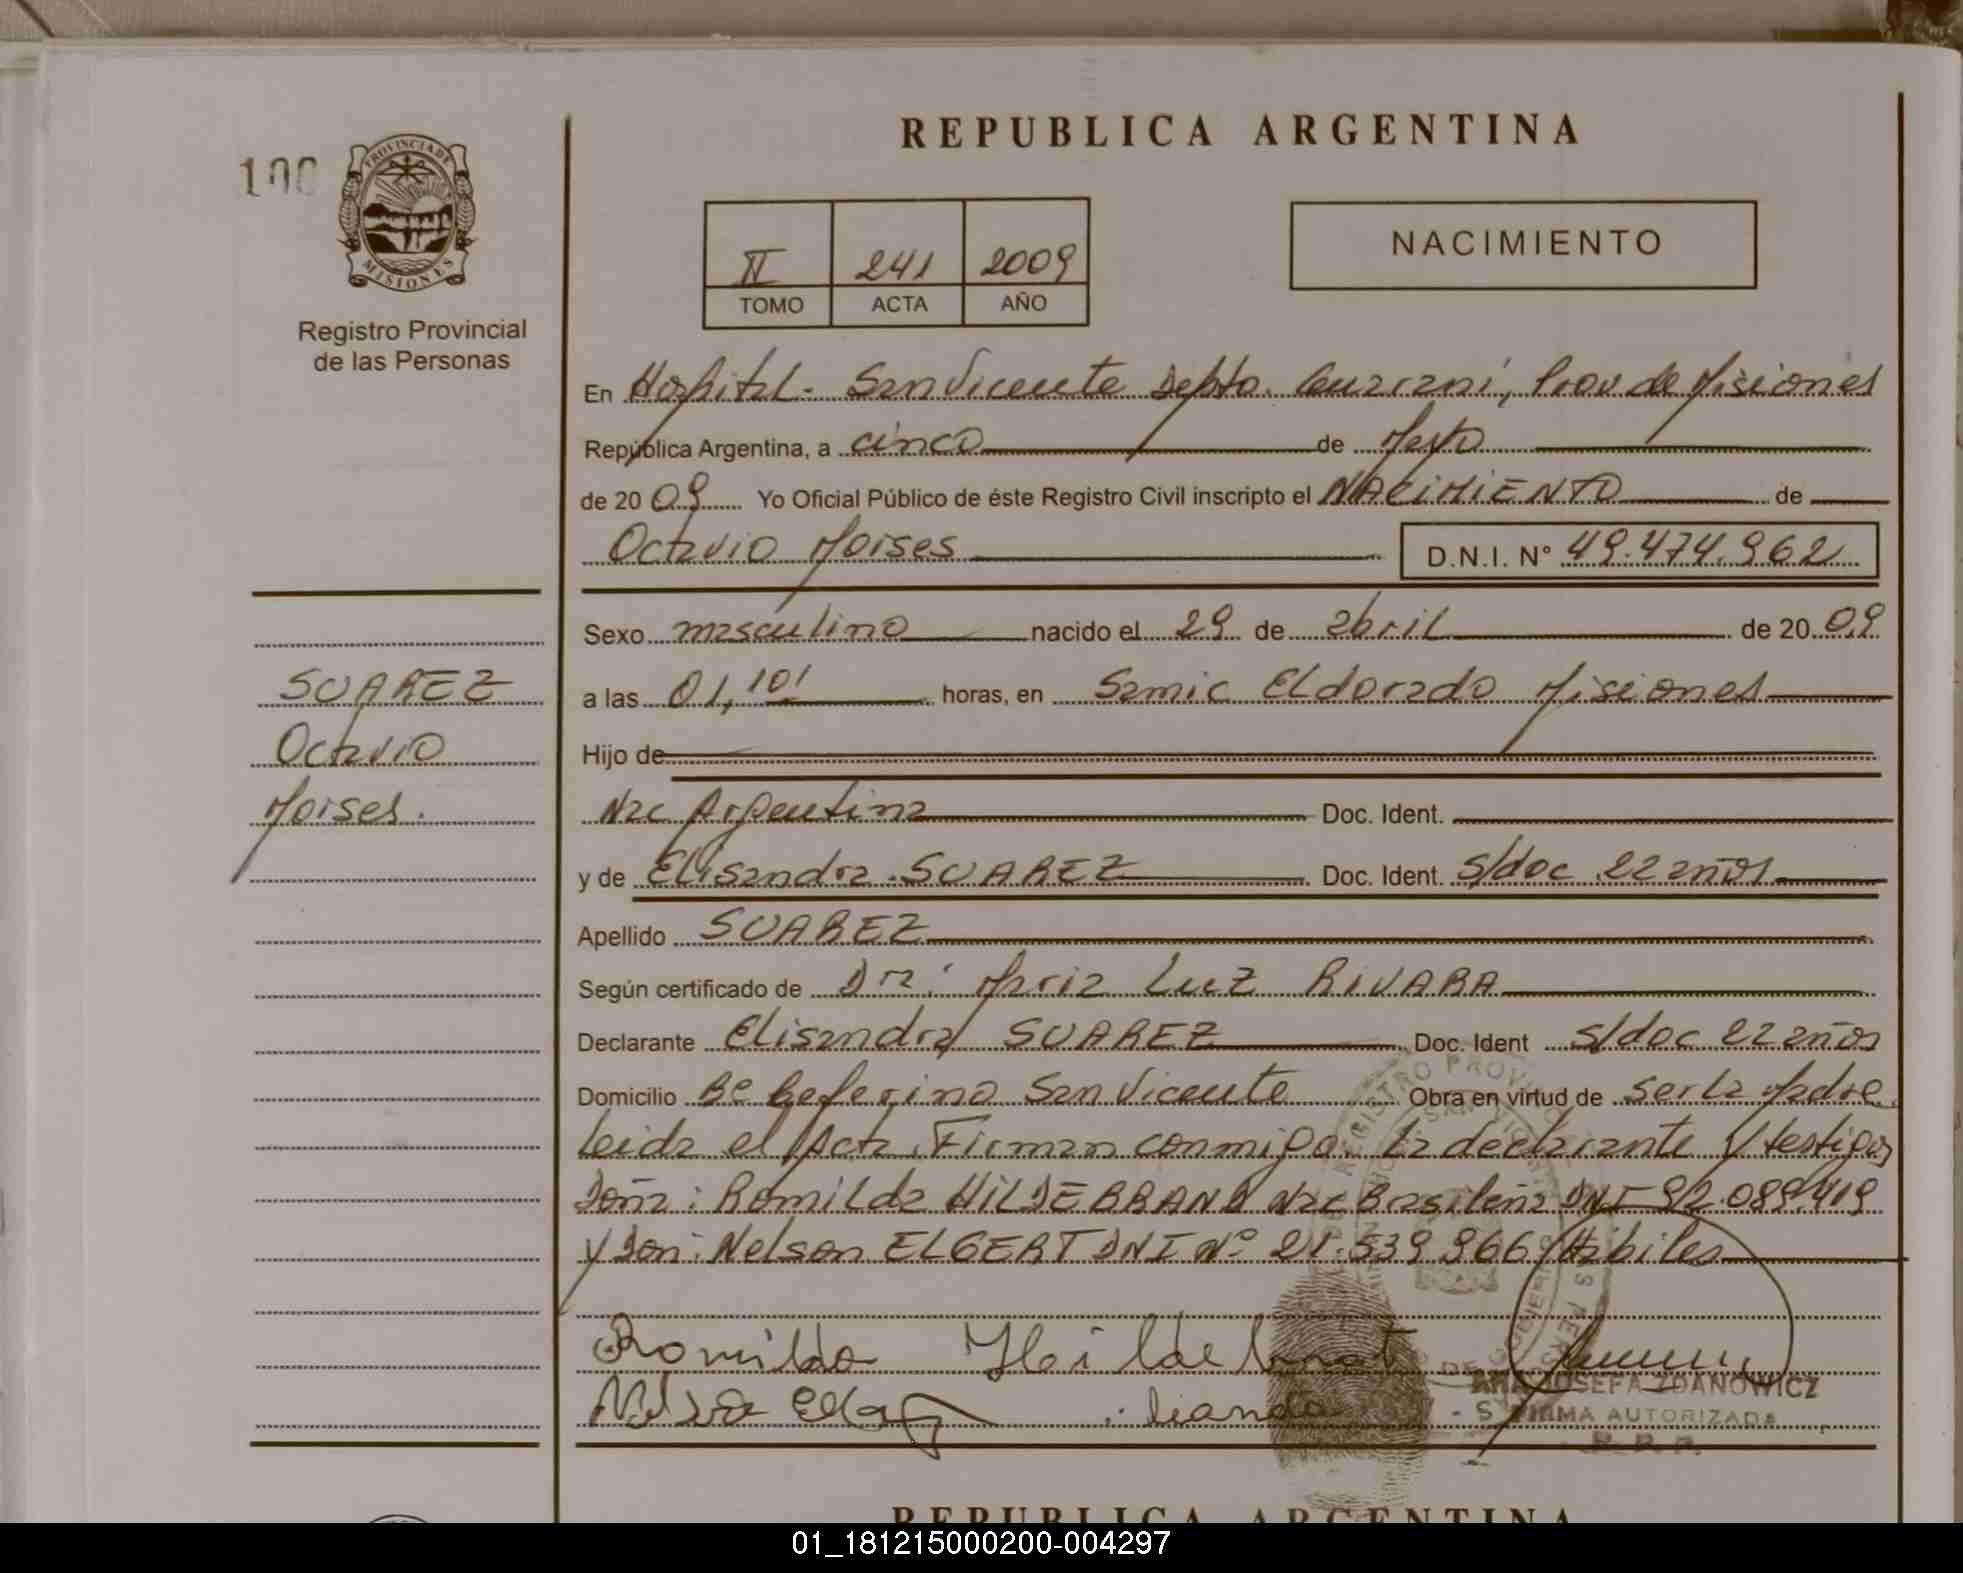 REPUBLICA ARGENTINA
100
PROVINCIA DE
MISIONES
Registro Provincial
de las Personas
II 241 2009
TOMO ACTA AÑO
NACIMIENTO
En Hospital - San Vicente Depto. Guarani, Prov de Misiones
República Argentina, a cinco de Mayo
de 20 09 Yo Oficial Público de éste Registro Civil inscripto el NACIMIENTO de
Octavio Moises D.N.I. N° 49.474.962
Sexo masculino nacido el 29 de abril de 20 09
a las 01,10' horas, en Samic Eldorado Misiones
Hijo de
Nac Argentina Doc. Ident.
y de Elisandra SUAREZ Doc. Ident. S/doc 22 años
Apellido SUAREZ
Según certificado de Dra: Maria Luz RIVARA
Declarante Elisandra SUAREZ Doc. Ident S/doc 22 años
Domicilio Bº Ceferino San Vicente Obra en virtud de ser la Madre
Leida el Acta, Firman conmigo. La declarante y testigos
Doña: Romilda HILDEBRAND Nac Brasileña DNI 92.089.419
y Don: Nelson ELGERT DNI Nº 21.539.966 Habiles
SUAREZ
Octavio
Moises.
Romilda
ANA JOSEFA ZDANOWICZ
FIRMA AUTORIZADA
R. P. P.
REPUBLICA ARGENTINA
01_181215000200-004297